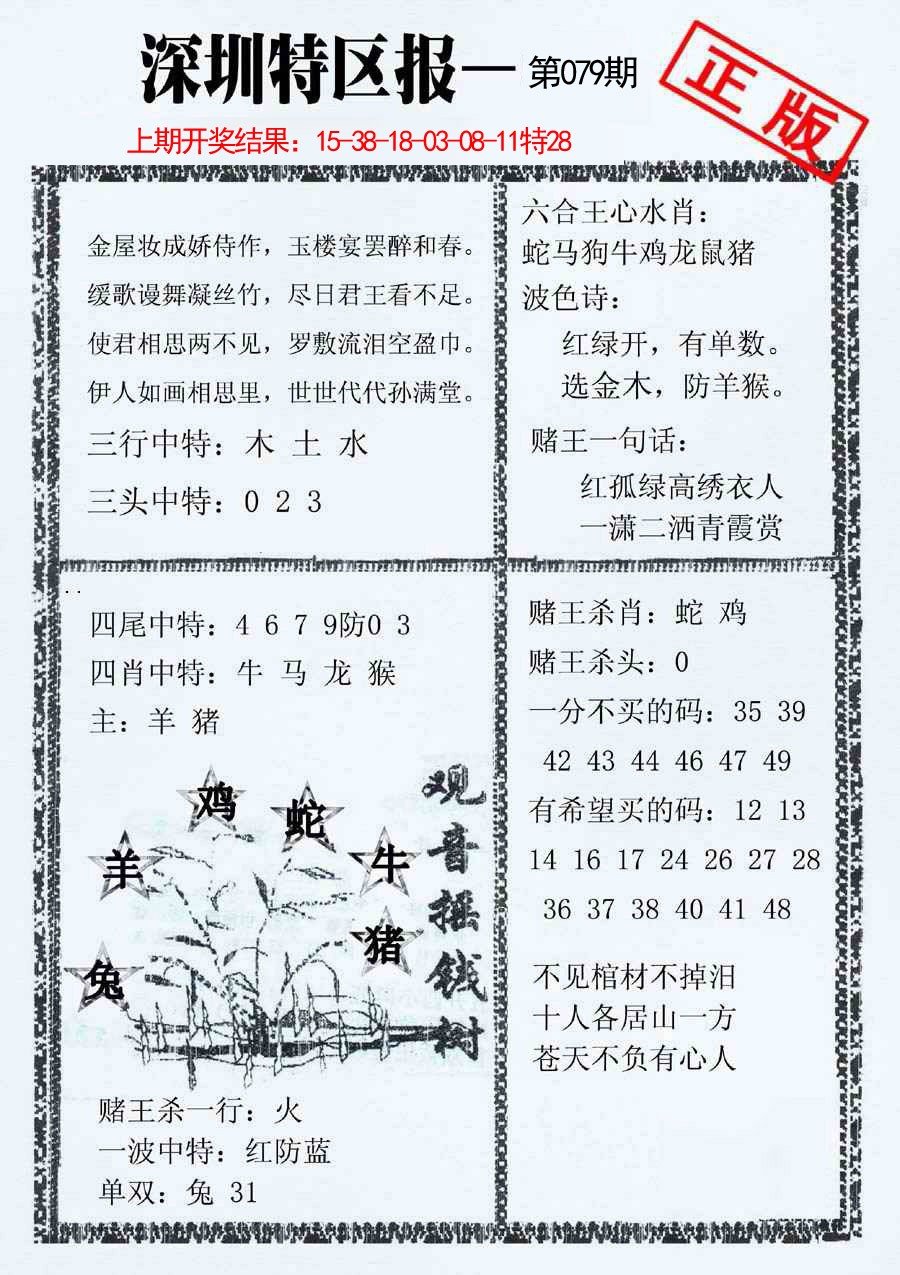 深圳特区报— 第079期
正版
上期开奖结果：15-38-18-03-08-11特28
金屋妆成娇侍作，玉楼宴罢醉和春。
缓歌谩舞凝丝竹，尽日君王看不足。
使君相思两不见，罗敷流泪空盈巾。
伊人如画相思里，世世代代孙满堂。
三行中特：木 土 水
三头中特：0 2 3
六合王心水肖：
蛇马狗牛鸡龙鼠猪
波色诗：
红绿开，有单数。
选金木，防羊猴。
赌王一句话：
红孤绿高绣衣人
一潇二洒青霞赏
四尾中特：4 6 7 9防0 3
四肖中特：牛 马 龙 猴
主：羊 猪
鸡
蛇
羊
牛
猪
兔
观音摇钱树
赌王杀一行：火
一波中特：红防蓝
单双：兔 31
赌王杀肖：蛇 鸡
赌王杀头：0
一分不买的码：35 39
42 43 44 46 47 49
有希望买的码：12 13
14 16 17 24 26 27 28
36 37 38 40 41 48
不见棺材不掉泪
十人各居山一方
苍天不负有心人